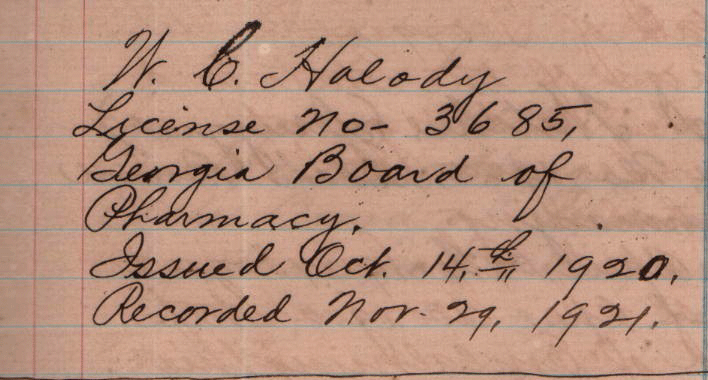 W. C. Halody
License No- 3685,
Georgia Board of
Pharmacy.
Issued Oct. 14,th 1920.
Recorded Nov. 29, 1921.